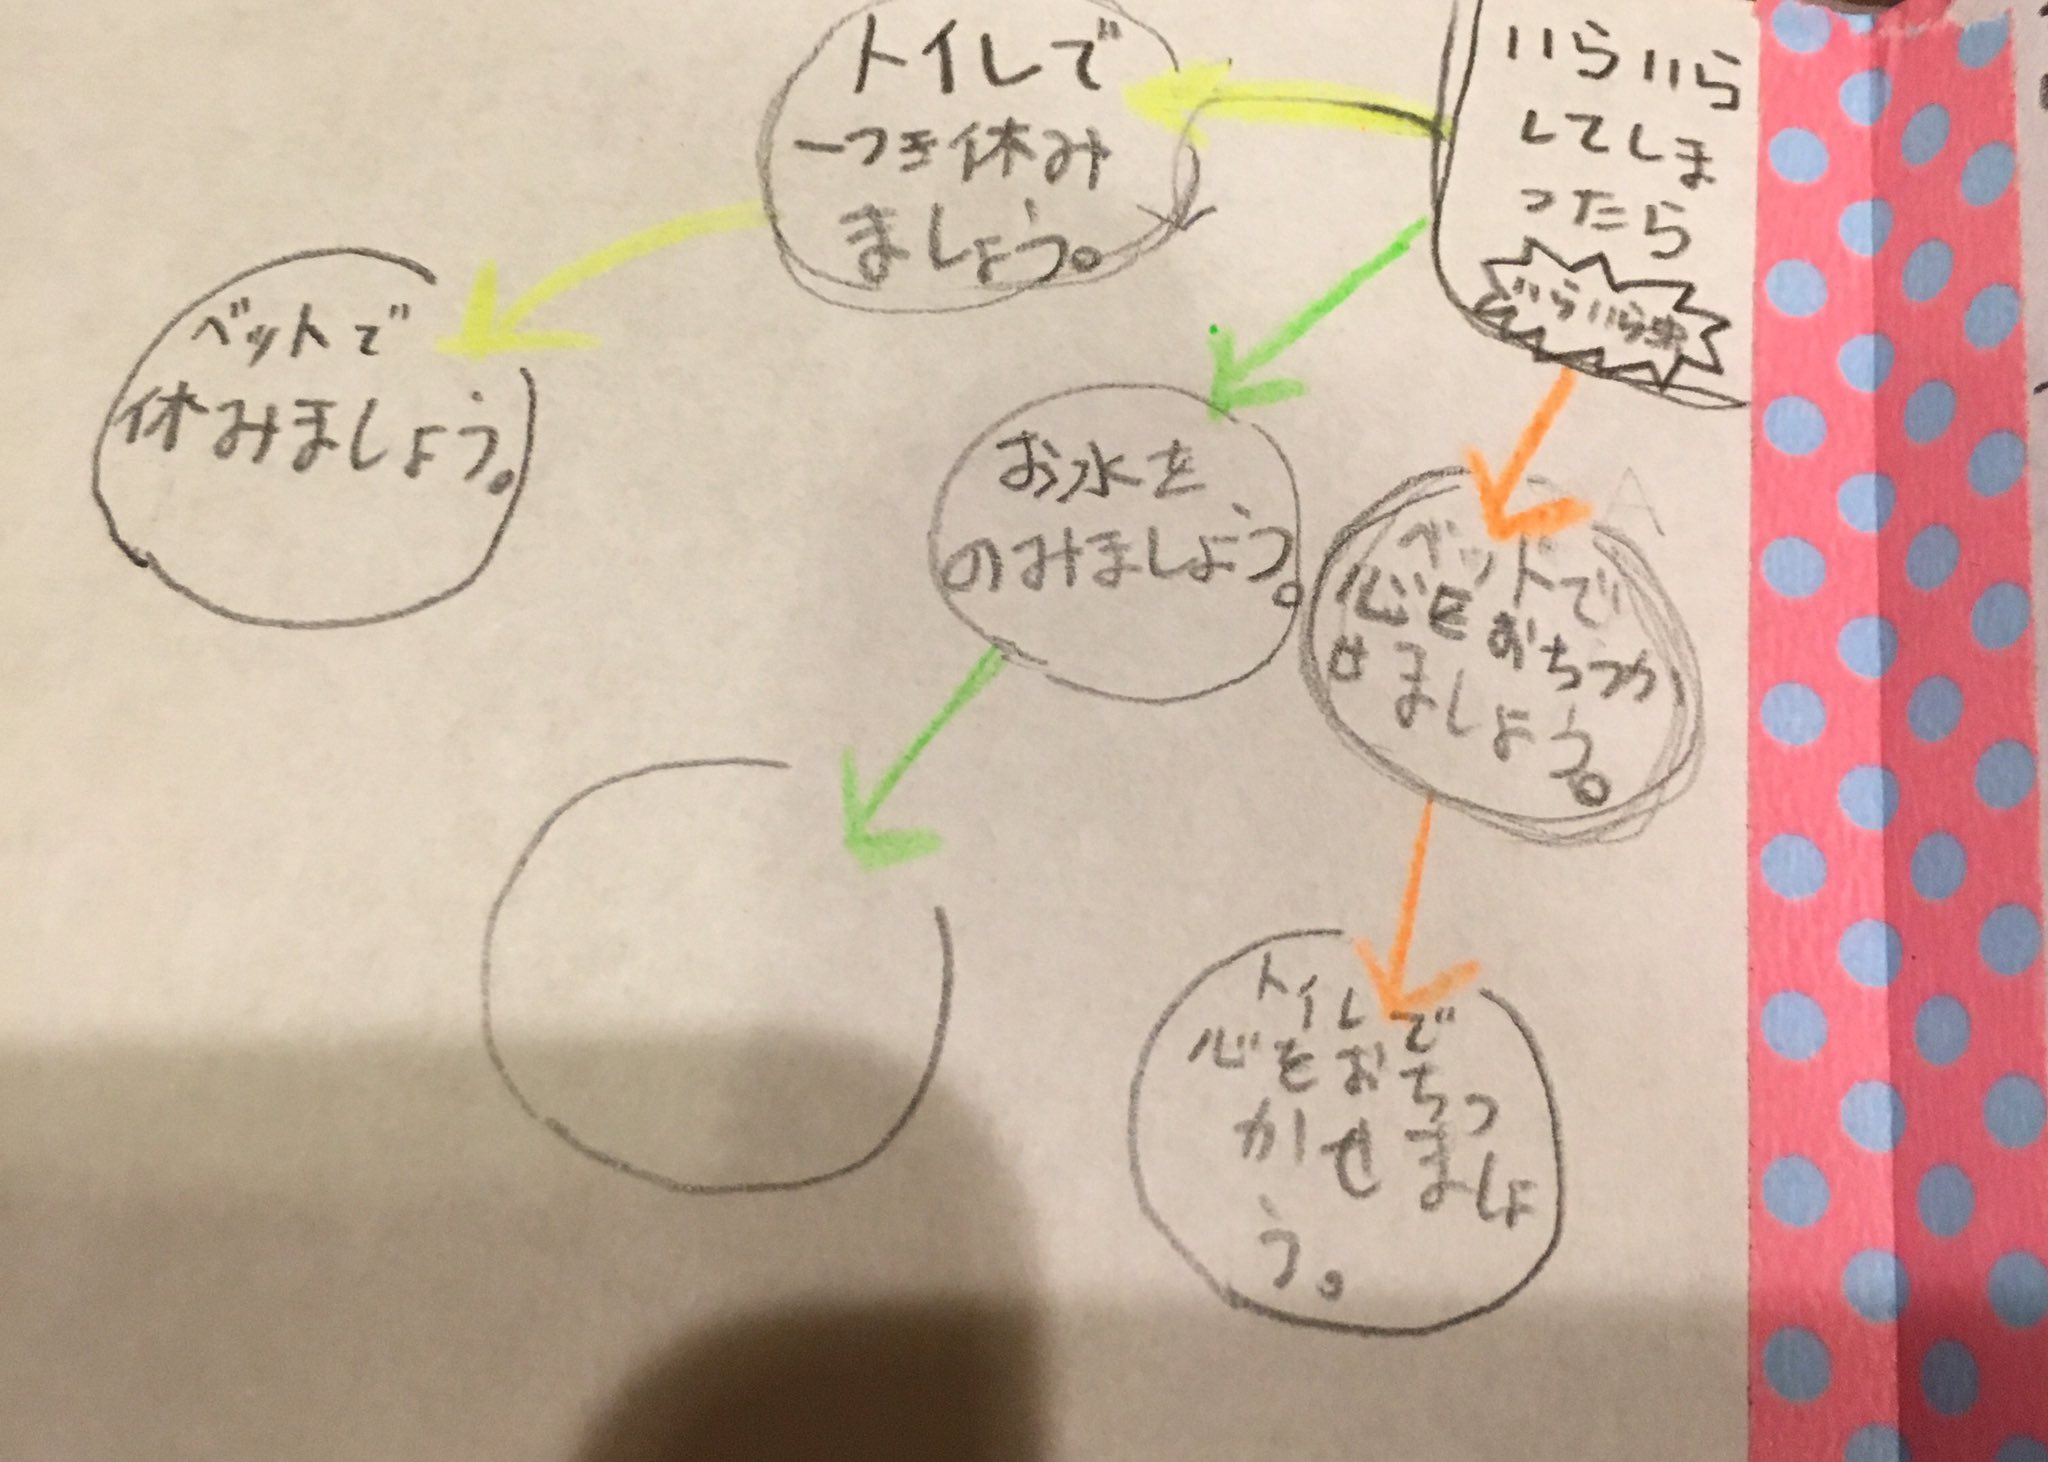 いらいら
してしま
ったら
いらいら
トイレで
一つき休み
ましょう。
ベットで
休みましょう。
お水を
のみましょう。
ベットで
心をおちつか
せましょう。
トイレで
心をおちつ
かせましょ
う。